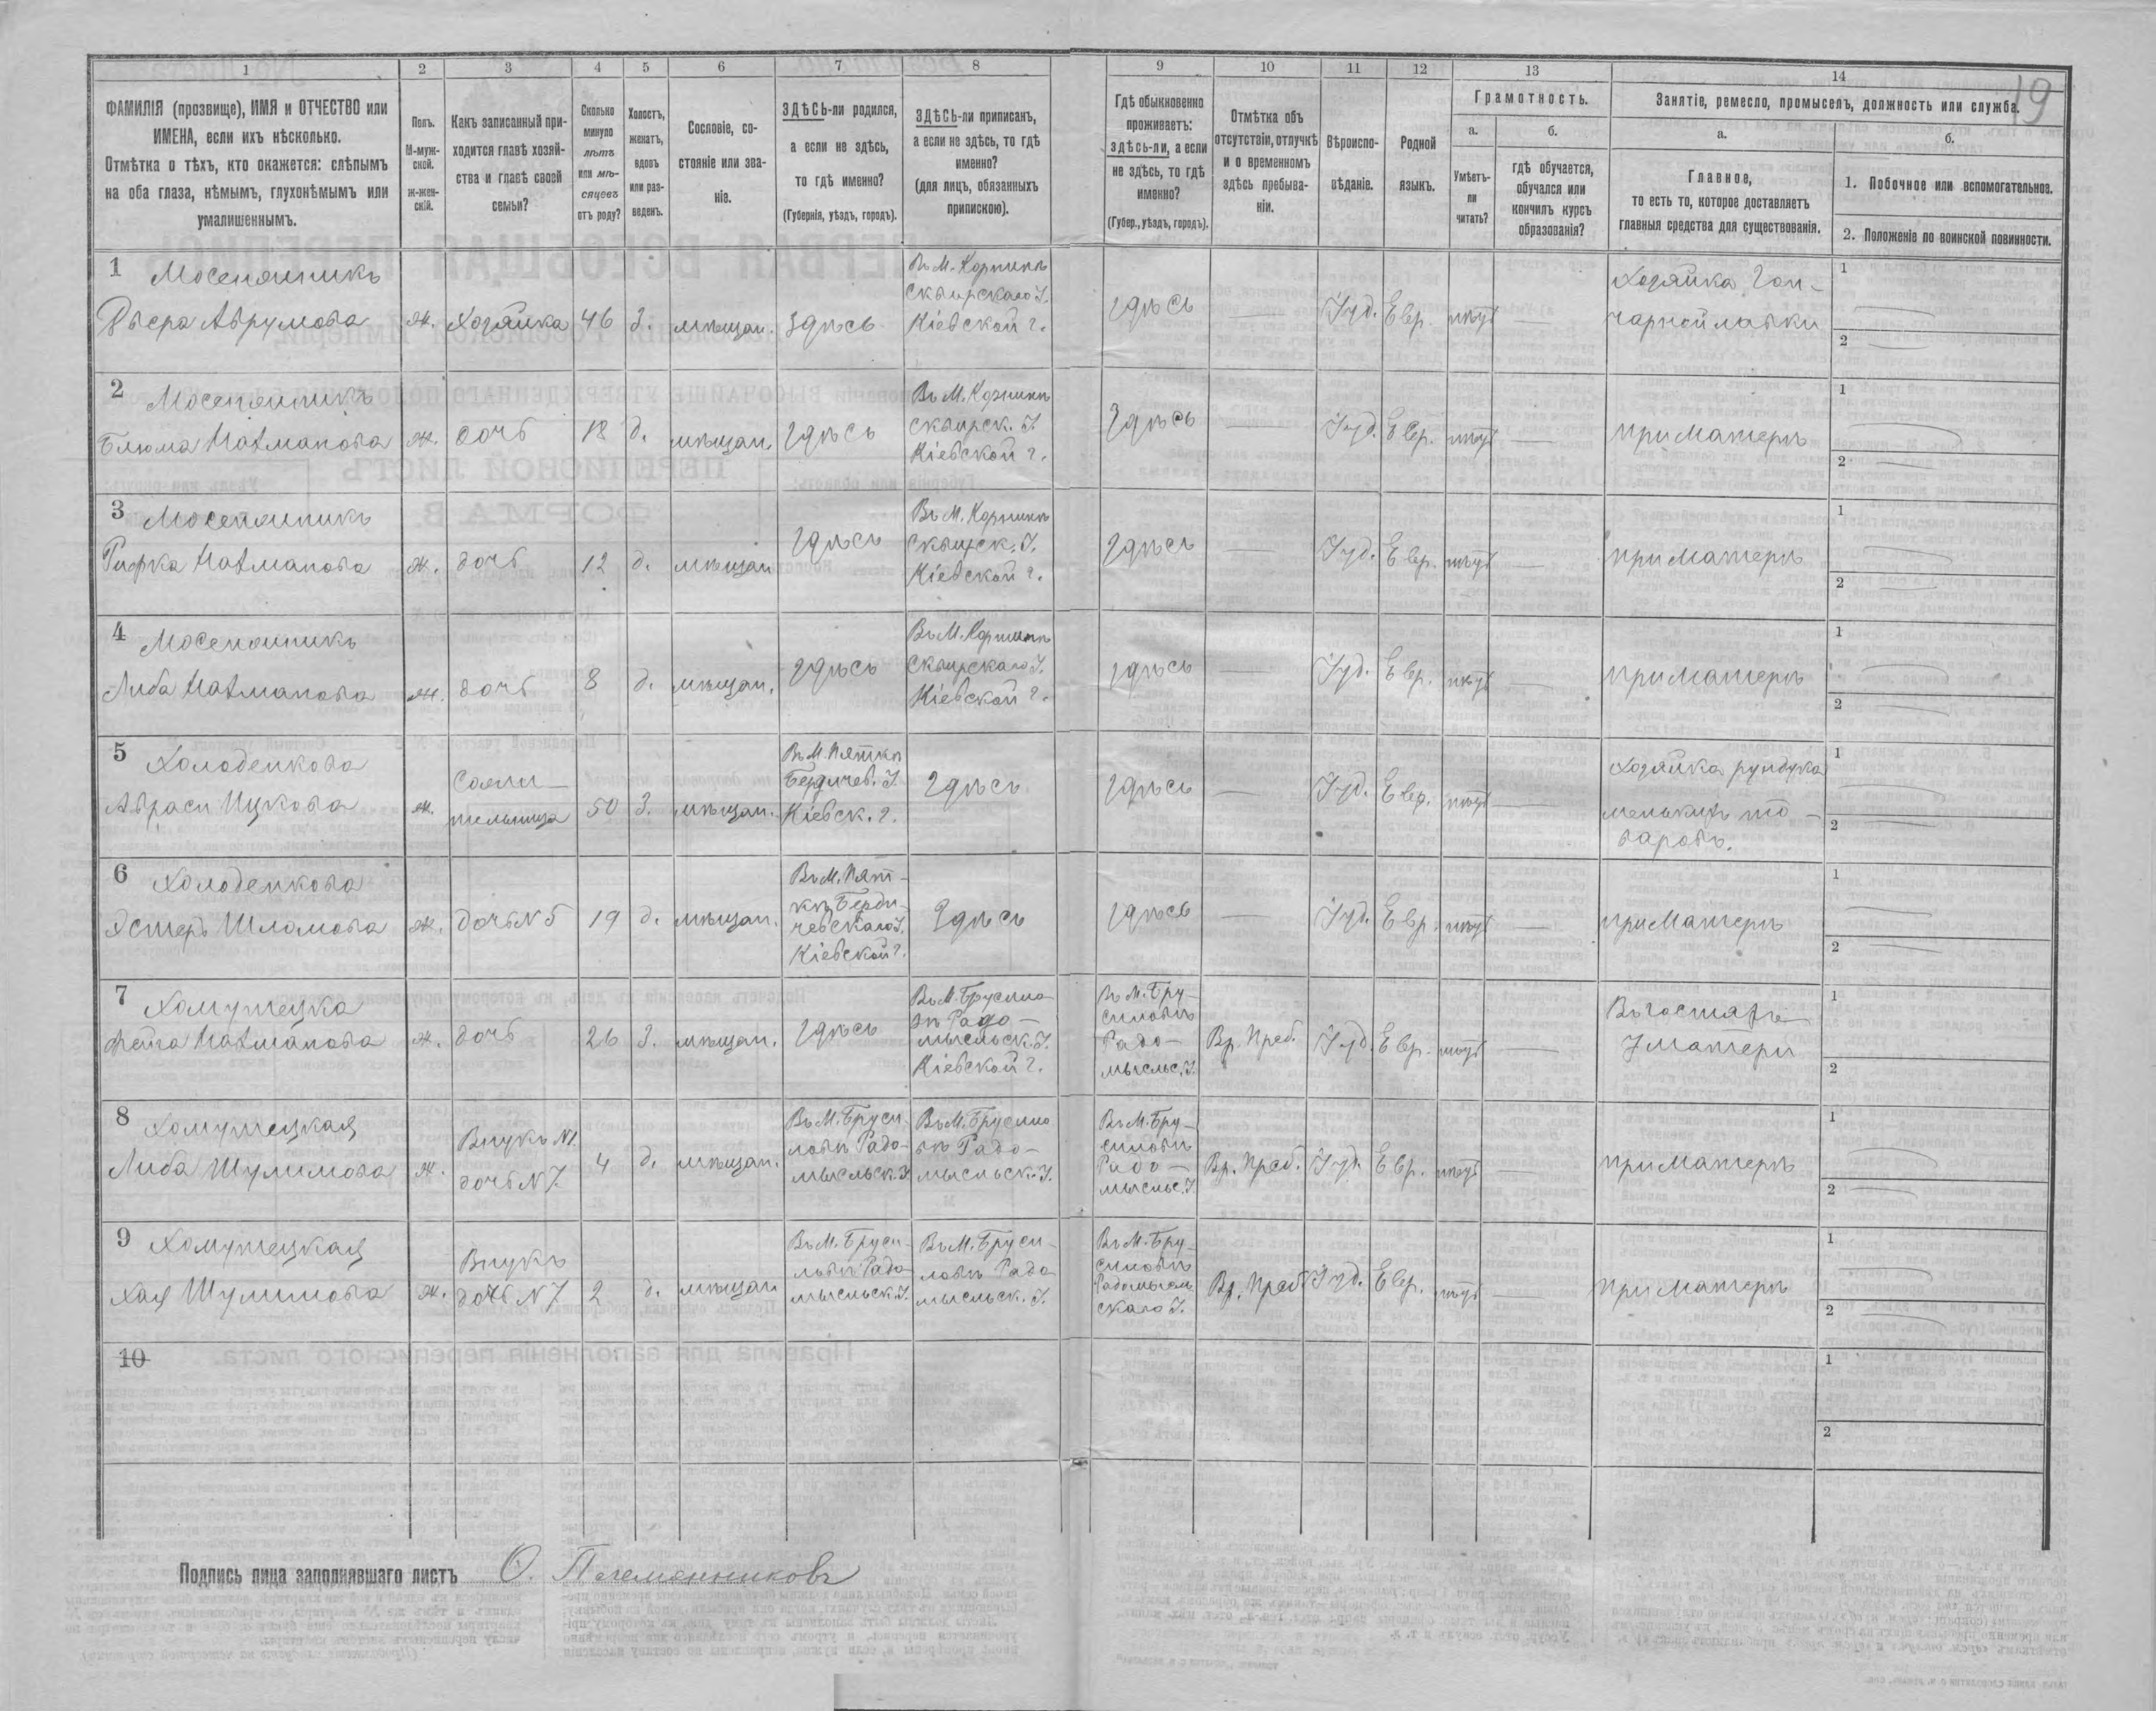 19
1 2 3 4 5 6 7 8 9 10 11 12 13 14
ФАМИЛІЯ (прозвище), ИМЯ и ОТЧЕСТВО или
ИМЕНА, если ихъ нѣсколько.
Отмѣтка о тѣхъ, кто окажется: слѣпымъ
на оба глаза, нѣмымъ, глухонѣмымъ или
умалишеннымъ.
Полъ.
М-муж-
ской.
ж-жен-
скій.
Какъ записанный при-
ходится главѣ хозяй-
ства и главѣ своей
семьи?
Сколько
минуло
лѣтъ
или мѣ-
сяцевъ
отъ роду?
Холостъ,
женатъ,
вдовъ
или раз-
веденъ.
Сословіе, со-
стояніе или зва-
ніе.
ЗДѢСЬ-ли родился,
а если не здѣсь,
то гдѣ именно?
(Губернія, уѣздъ, городъ).
ЗДѢСЬ-ли приписанъ,
а если не здѣсь, то гдѣ
именно?
(для лицъ, обязанныхъ
припискою).
Гдѣ обыкновенно
проживаетъ:
здѣсь-ли, а если
не здѣсь, то гдѣ
именно?
(Губер., уѣздъ, городъ).
Отмѣтка объ
отсутствіи, отлучкѣ
и о временномъ
здѣсь пребыва-
ніи.
Вѣроиспо-
вѣданіе.
Родной
языкъ.
Грамотность.
а.
Умѣетъ-
ли
читать?
б.
гдѣ обучается,
обучался или
кончилъ курсъ
образованія?
Занятіе, ремесло, промыселъ, должность или служба.
а.
Главное,
то есть то, которое доставляетъ
главныя средства для существованія.
б.
1. Побочное или вспомогательное.
2. Положеніе по воинской повинности.
1
Ривера Аврумова
ж.
Хозяйка
46
З.
мѣщан.
Здѣсь
Въ М. Корнинѣ
Сквирскаго У.
Кіевской г.
Здѣсь
—
Іуд.
Евр.
нѣтъ
—
Хозяйка Гон-
чарной лавки
1
2
2
Блюма Нахманова
ж.
дочь
18
д.
мѣщан.
Здѣсь
Въ М. Корнинѣ
Сквирск. У.
Кіевской г.
Здѣсь
—
Іуд.
Евр.
нѣтъ
—
при Матерѣ
1
2
3
Рифка Нахманова
ж.
дочь
12
д.
мѣщан
Здѣсь
Въ М. Корнинѣ
Сквирск. У.
Кіевской г.
Здѣсь
—
Іуд.
Евр.
нѣтъ
—
при Матерѣ
1
2
4
Либа Нахманова
ж.
дочь
8
д.
мѣщан.
Здѣсь
Въ М. Корнинѣ
Сквирскаго У.
Кіевской г.
Здѣсь
—
Іуд.
Евр.
нѣтъ
—
при Матерѣ
1
2
5
Холоденкова
Ицкова
ж.
Сожи-
тельница
50
З.
мѣщан.
Въ М. Пяткѣ
Бердичев. У.
Кіевск. г.
Здѣсь
Здѣсь
—
Іуд.
Евр.
нѣтъ
—
Хозяйка рундука
мелькихъ то-
варовъ.
1
2
6
Холоденкова
Эстеръ Шломова
ж.
Дочь N 5
19
д.
мѣщан.
Въ М. Пят-
кѣ Берди-
чевскаго У.
Кіевской г.
Здѣсь
Здѣсь
—
Іуд.
Евр.
нѣтъ
—
при Матерѣ
1
2
7
Хомутецка
Фейга Нахманова
ж.
дочь
26
З.
мѣщан.
Здѣсь
Въ М. Брусило-
вѣ Радо-
мысльск. У.
Кіевской г.
Въ М. Бру-
силовѣ
Радо-
мысльс. У.
Вр. Преб.
Іуд.
Евр.
нѣтъ
—
Въ гостяхъ
У матери
1
2
8
Хомутецкая
Либа Шулимова
ж.
Внукъ N1.
дочь N 7.
4
д.
мѣщан.
Въ М. Бруси-
ловѣ Радо-
мысльск. У.
Въ М. Брусило
вѣ Радо-
мысльск. У.
Въ М. Бру-
силовѣ
Радо-
мысльс. У
Вр. Преб.
Іуд.
Евр.
нѣтъ
—
при Матерѣ
1
2
9
Хомутецкая
Хая Шулимова
ж.
Внукъ
дочь N 7
2
д.
мѣщан
Въ М. Бруси-
ловѣ Радо
мысльск. У.
Въ М. Бруси-
ловѣ Радо
мысльск. У.
Въ М. Бру-
силовѣ
Радомысль
скаго У.
Вр. Преб
Іуд.
Евр.
нѣтъ
—
при Матерѣ
1
2
10
1
2
Подпись лица заполнявшаго листъ